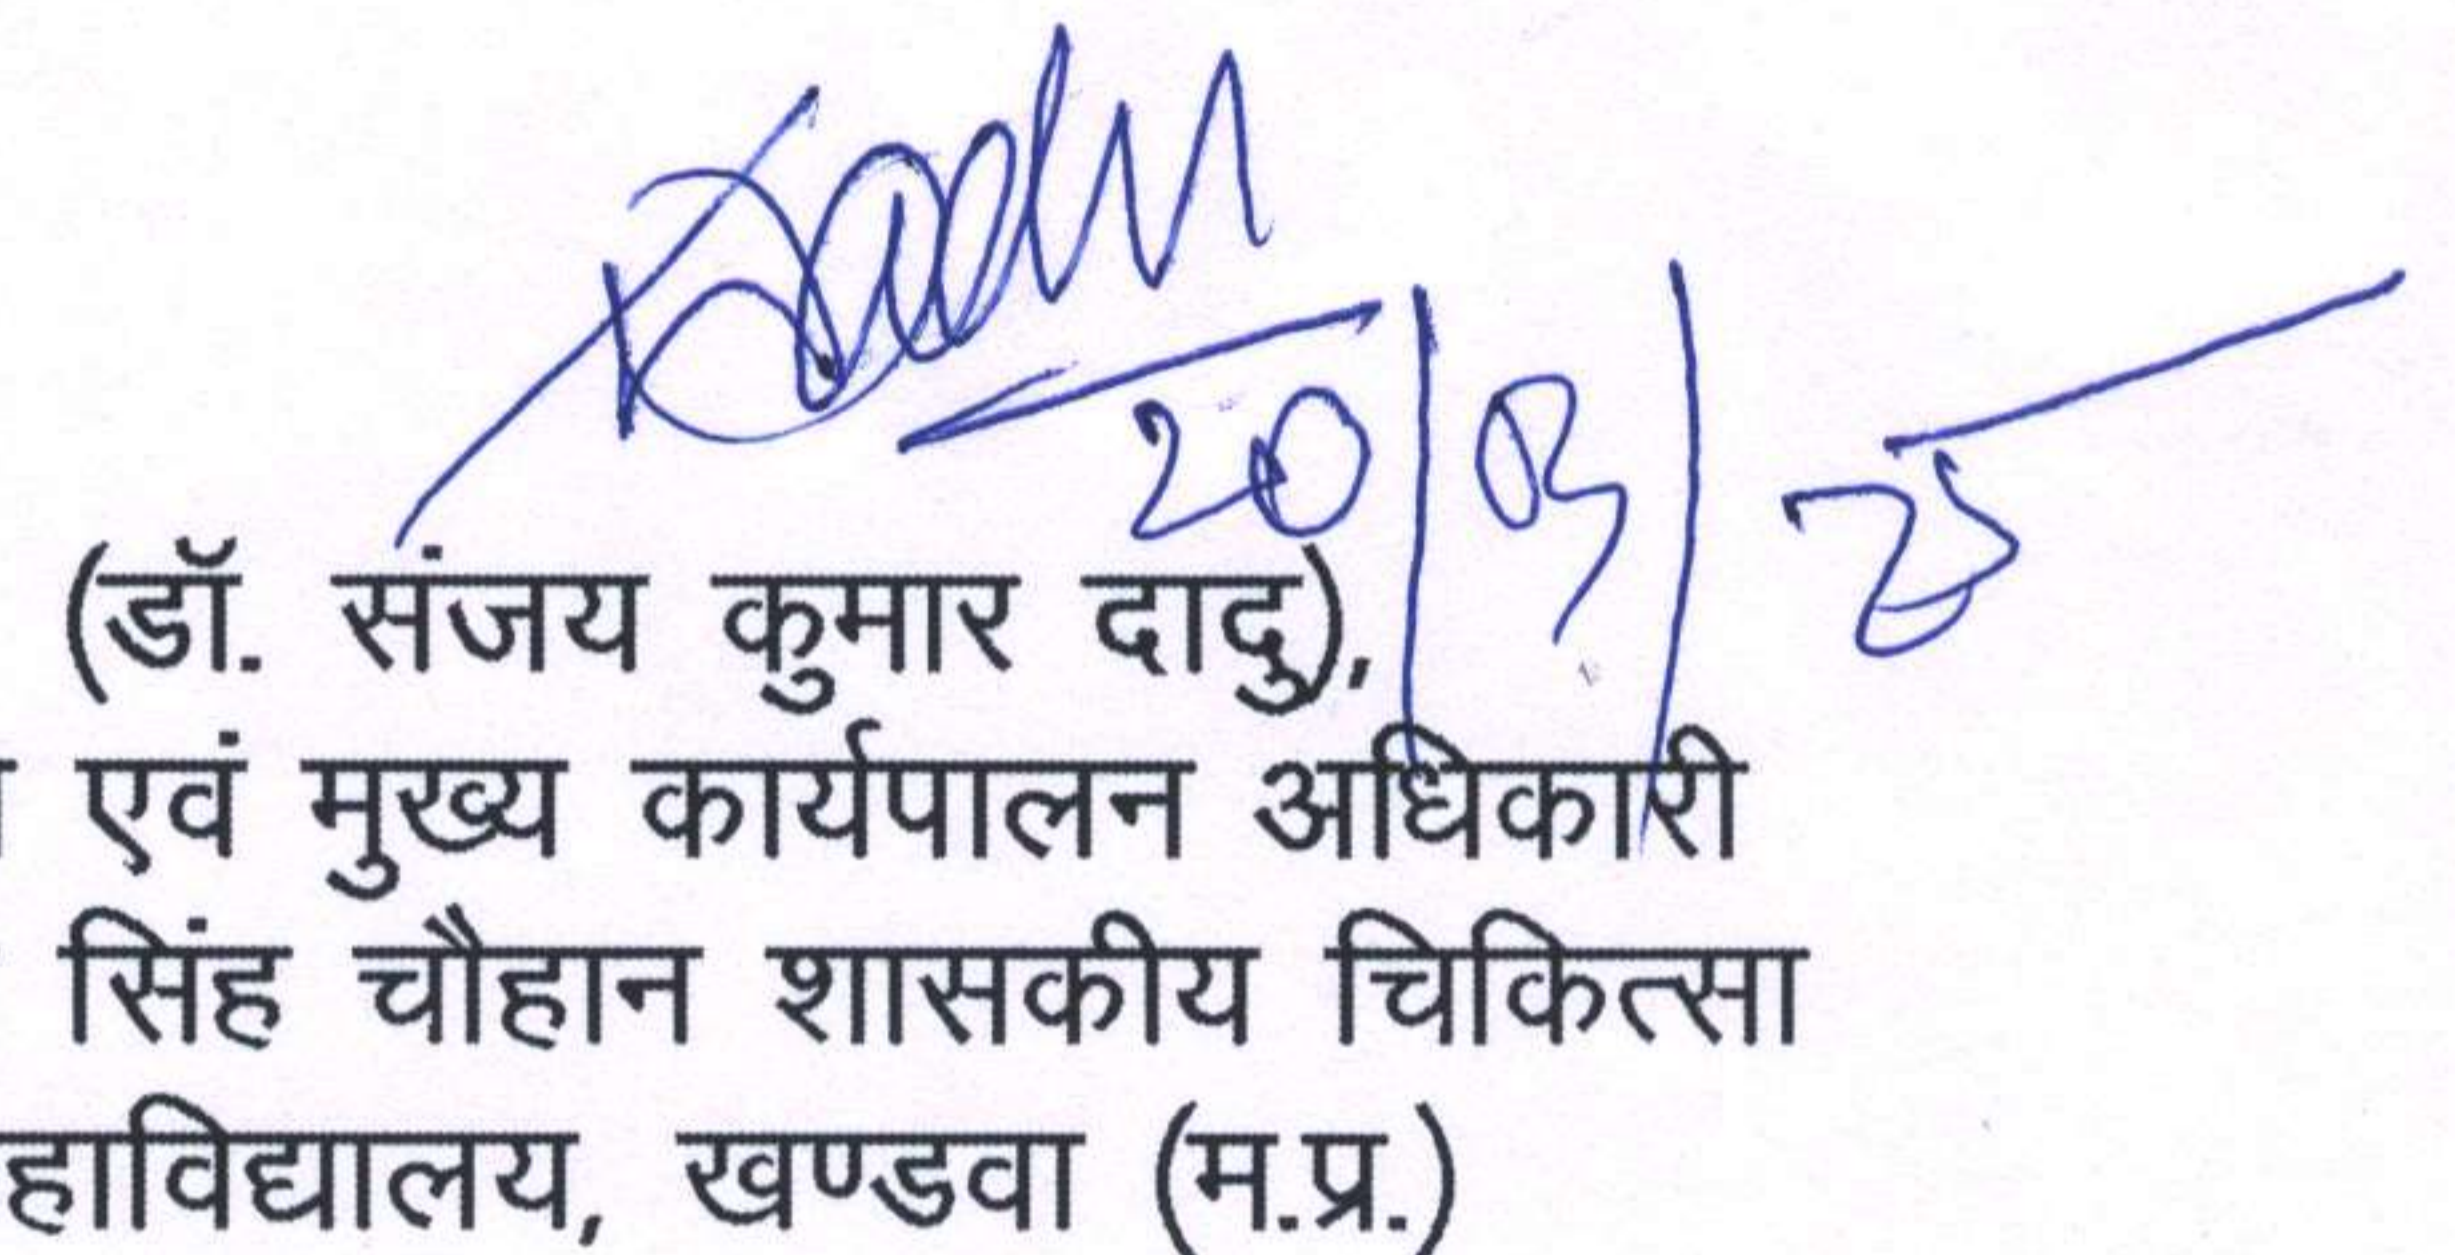 20/03/25
(डॉ. संजय कुमार दादु),
एवं मुख्य कार्यपालन अधिकारी
सिंह चौहान शासकीय चिकित्सा
हाविद्यालय, खण्डवा (म.प्र.)